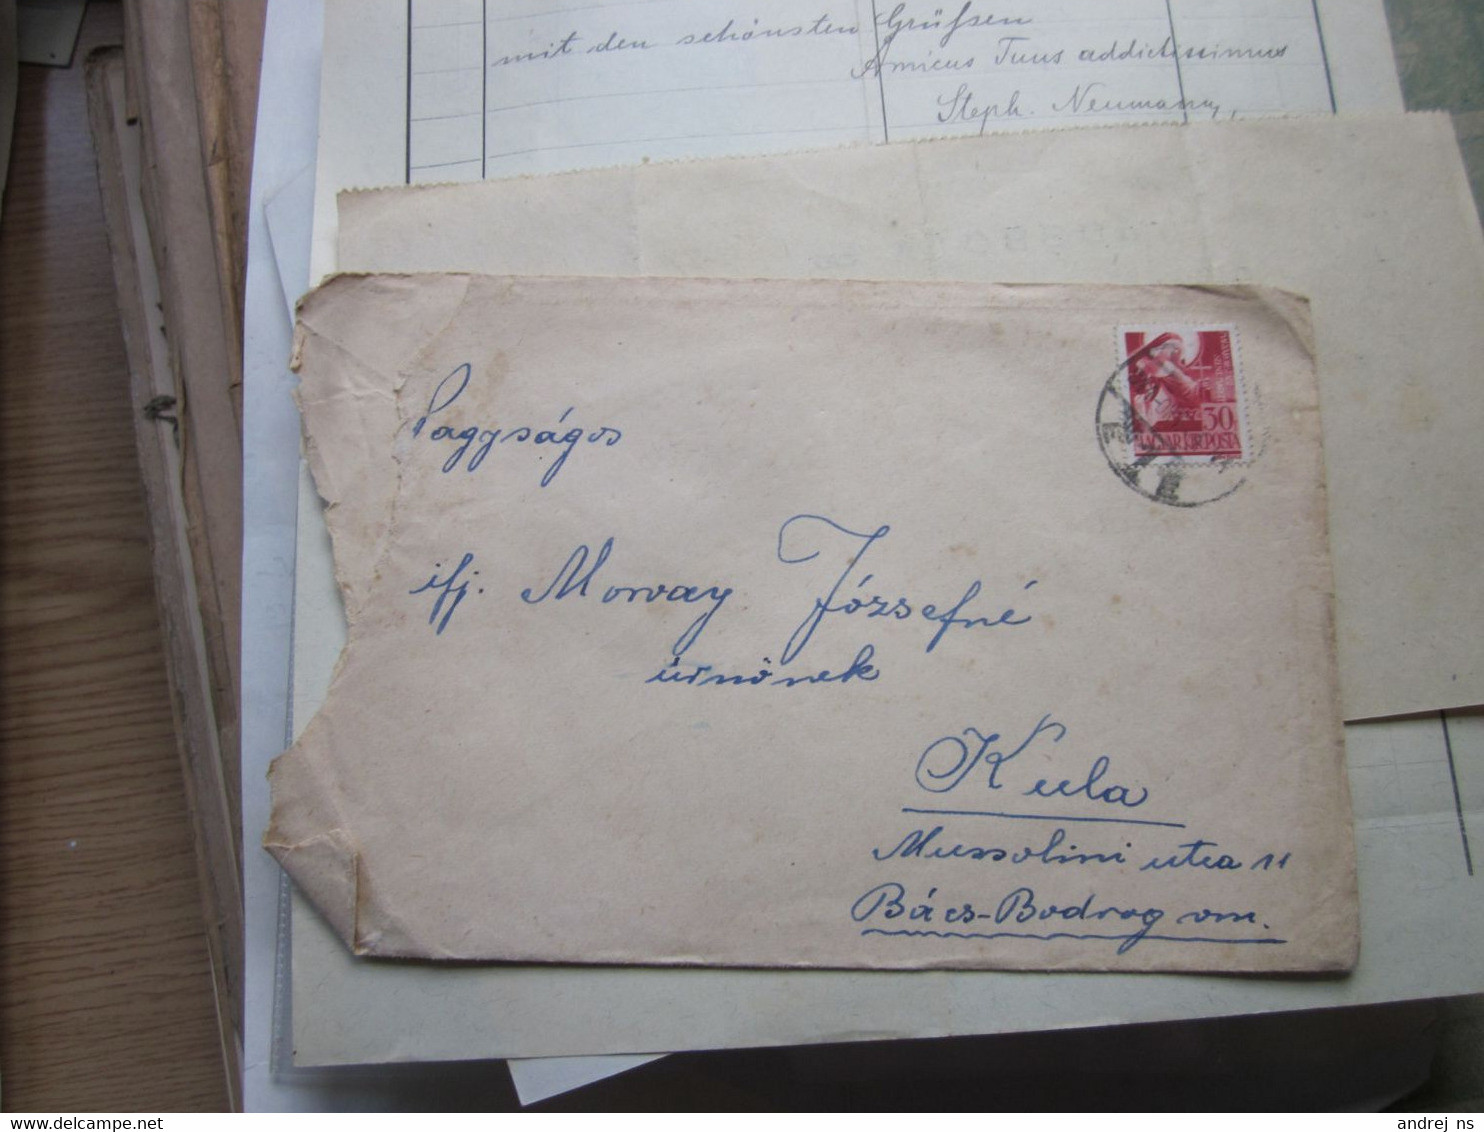 mit den schönsten Grüßen
Amicus Tuus addictissimus
Steph. Neumann
30
MAGYAR KIR. POSTA
Nagyságos
ifj. Morvay Józsefné
úrnőnek
Kula
Mussolini utca 11
Bács-Bodrog vm.
andrej_ns